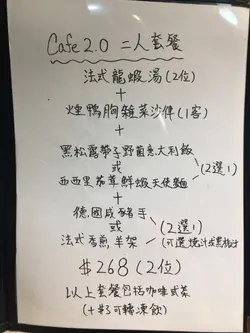 Cafe 2.0 二人套餐
法式龍蝦湯(2位)
+
煙鴨胸雜菜沙律(1客)
+
黑松露帶子野菌意大利飯
或 (2選1)
西西里茄蓉鮮蝦天使麵
+
德國咸豬手
或 (2選1)
法式香煎羊架 (可選燒汁或黑椒汁
$268(2位)
以上套餐包括咖啡或茶
(+$3可轉凍飲)